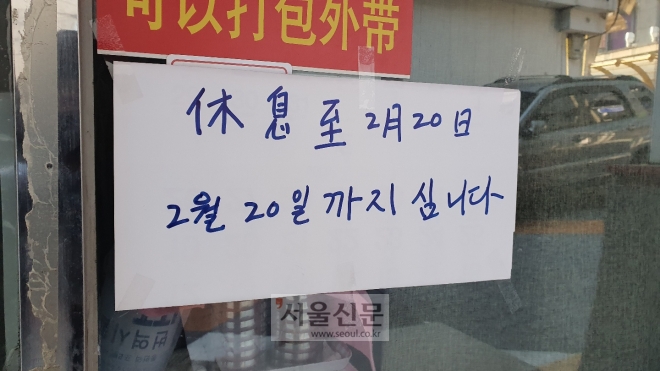 可以打包外带
休息至2月20日
2월 20일 까지 십니다
서울신문
www.seoul.co.kr